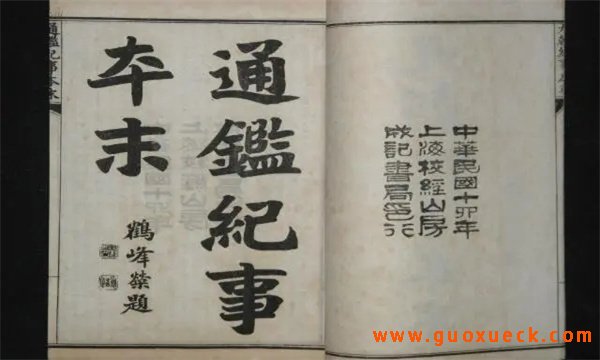 中華民國十四年
上海校經山房
成記書局印行
通鑑紀事
本末
鶴峰題
通鑑紀事本末
www.guoxueck.com